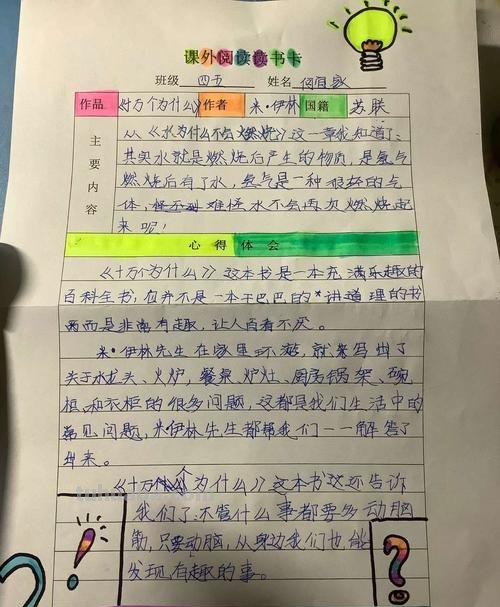 课外阅读读书卡
班级 四五 姓名
作品 《十万个为什么》 作者 米·伊林 国籍 苏联
主要内容
从《水为什么不会燃烧》这一章我知道了、
其实水就是燃烧后产生的物质,是氢气
燃烧后有了水,氢气是一种很好的气
体,难怪水不会再次燃烧起
来呢!
心得体会
《十万个为什么》这本书是一本充满乐趣的
百科全书,但并不是一本干巴巴的"讲道理的书
而是非常有趣,让人百看不厌。
米·伊林先生在家里环游,就能写出了
关于水龙头、火炉,餐桌、炉灶、厨房锅架、碗
柜和衣柜的很多问题,这都是我们生活中的
常见问题,米伊林先生都帮我们一一解答了
出来。
《十万个为什么》这本书还告诉
我们了,不管什么事都要多动脑
筋,只要动脑,从身边我们也能
发现有趣的事。